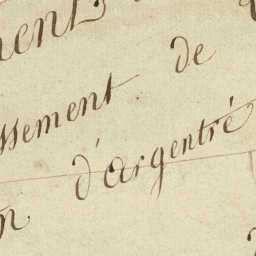 ment
ssement de
n d'argentré